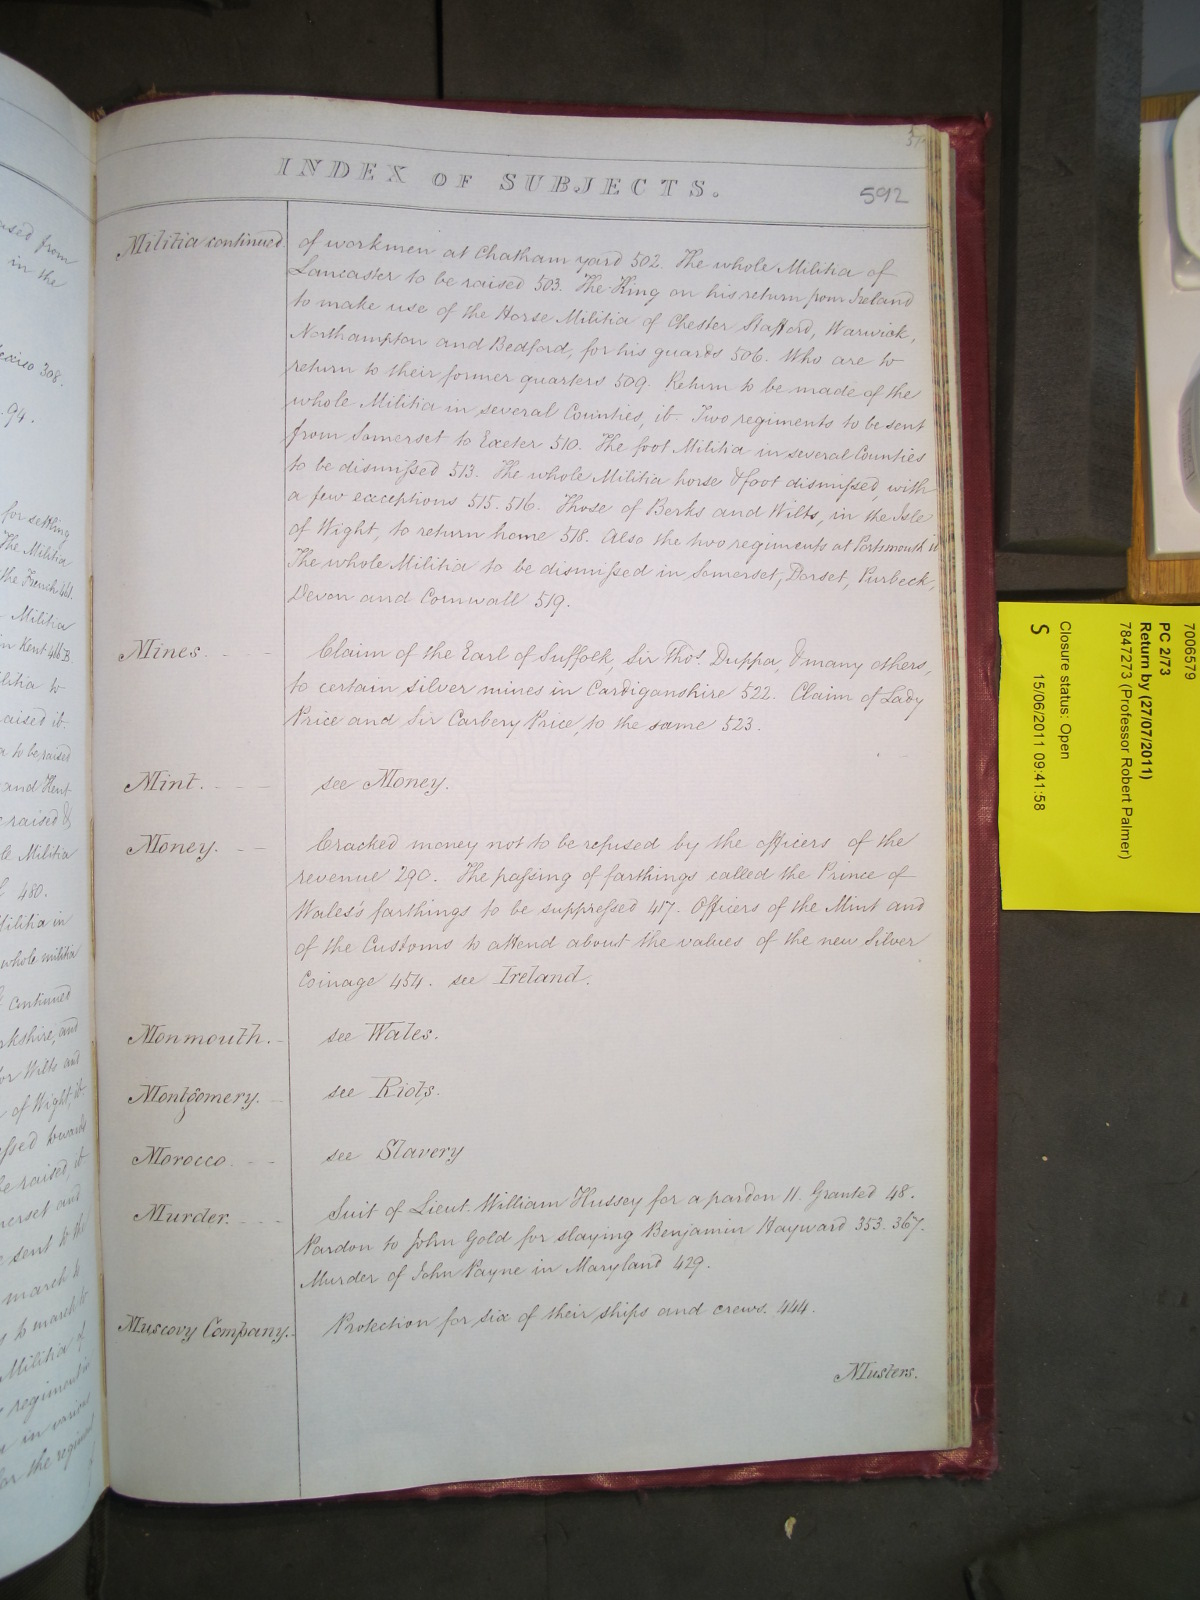 INDEX OF SUBJECTS.
592
Militia continued. of workmen at Chatham yard 502. The whole Militia of
Lancaster to be raised 503. The King on his return from Ireland
to make use of the Horse Militia of Chester Stafford, Warwick,
Northampton and Bedford, for his guards 506. Who are to
return to their former quarters 509. Return to be made of the
whole Militia in several Counties, ib. Two regiments to be sent
from Somerset to Exeter 510. The foot Militia in several Counties
to be dismissed 513. The whole Militia horse & foot dismissed, with
a few exceptions 515. 516. Those of Berks and Wilts, in the Isle
of Wight, to return home 518. Also the two regiments at Portsmouth ib
The whole Militia to be dismissed in Somerset, Dorset, Purbeck,
Devon and Cornwall 519.
Mines. Claim of the Earl of Suffolk, Sir Thos. Duppa, & many others,
to certain silver mines in Cardiganshire 522. Claim of Lady
Price and Sir Carbery Price, to the same 523.
Mint. see Money.
Money. Cracked money not to be refused by the officers of the
revenue 290. The passing of farthings called the Prince of
Wales's farthings to be suppressed 417. Officers of the Mint and
of the Customs to attend about the values of the new Silver
Coinage 454. see Ireland.
Monmouth. see Wales.
Montgomery. see Riots.
Morocco. see Slavery
Murder. Suit of Lieut. William Hussey for a pardon 11. Granted 48.
Pardon to John Gold for slaying Benjamin Hayward 353. 367.
Murder of John Payne in Maryland 429.
Muscovy Company. Protection for six of their ships and crews. 444.
Musters.
used from
in the
308.
94.
for settling
The Militia
the French 461.
Militia
in Kent 466B.
Militia to
raised ib.
to be raised
and Kent
raised &
Militia
480.
Militia in
whole militia
continued
Yorkshire, and
for Wilts and
of Wight, ib.
towards
be raised, ib
Somerset and
sent to the
march to
to march to
Militia of
regiment in
in various
for the regiment
7006579
PC 2/73
Return by (27/07/2011)
7847273 (Professor Robert Palmer)
Closure status: Open
S 15/06/2011 09:41:58